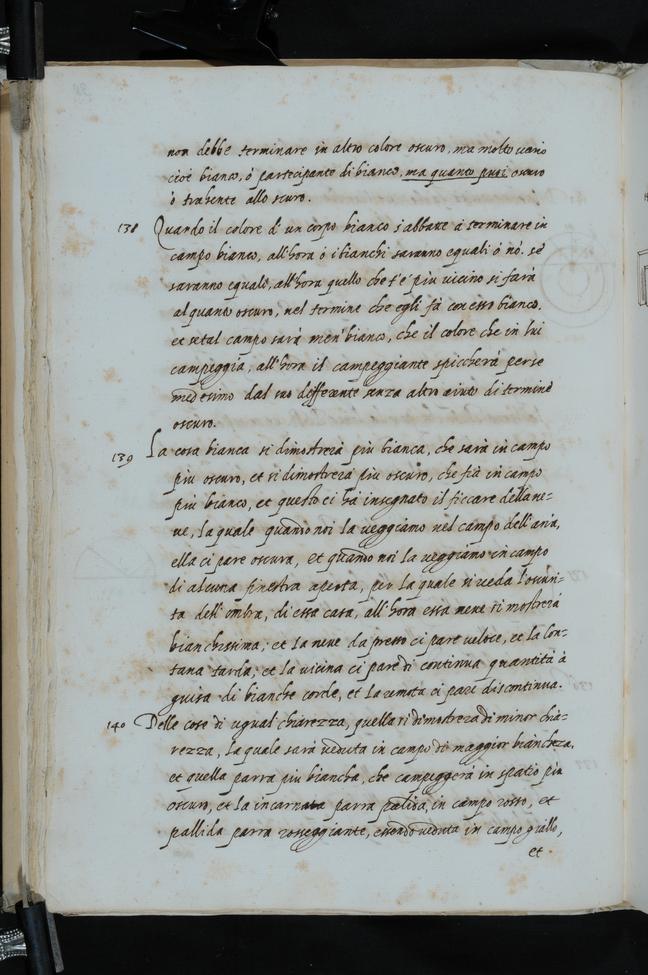 non debbe terminare in altro colore oscuro, ma molto uario
cioè bianco, ó partecipante di bianco, ma quanto puoi oscuro
ó trahente allo scuro.
138 Quando il colore d'un corpo bianco s'abbatte à terminare in
campo bianco, all'hora ó i bianchi saranno equali ó nò. se
saranno equali, all'hora quello che t'è più vicino si farà
alquanto oscuro, nel termine che egli fà con esso bianco.
et se tal campo sarà men' bianco, che il colore che in lui
campeggia, all'hora il campeggiante spiccherà per se
medesimo dal suo differente senza altro aiuto di termine
oscuro.
139 La cosa bianca si dimostrerà più bianca, che sarà in campo
più oscuro, et si dimostrerà più oscuro, che fià in campo
più bianco, et questo ci hà insegnato il fioccare della ne-
ue, la quale quando noi la ueggiamo nel campo dell'aria,
ella ci pare oscura, et quando noi la ueggiamo in campo
di alcuna finestra aperta, per la quale si ueda l'oscuri-
tà dell'ombra, di essa casa, all'hora essa neue si mostrerà
bianchissima; et la neue da presso ci pare ueloce, et la lon-
tana tarda; et la uicina ci pare di continua quantità à
guisa di bianche corde, et la remota ci pare discontinua.
140 Delle cose di ugual chiarezza, quella si dimostrerà di minor chia-
rezza, la quale sarà ueduta in campo di maggior bianchezza,
et quella parra piu biancha, che campeggerà in spatio più
oscuro, et la incarnata parra pallida, in campo rosso, et
pallida parra rosseggiante, essendo ueduta in campo giallo,
et